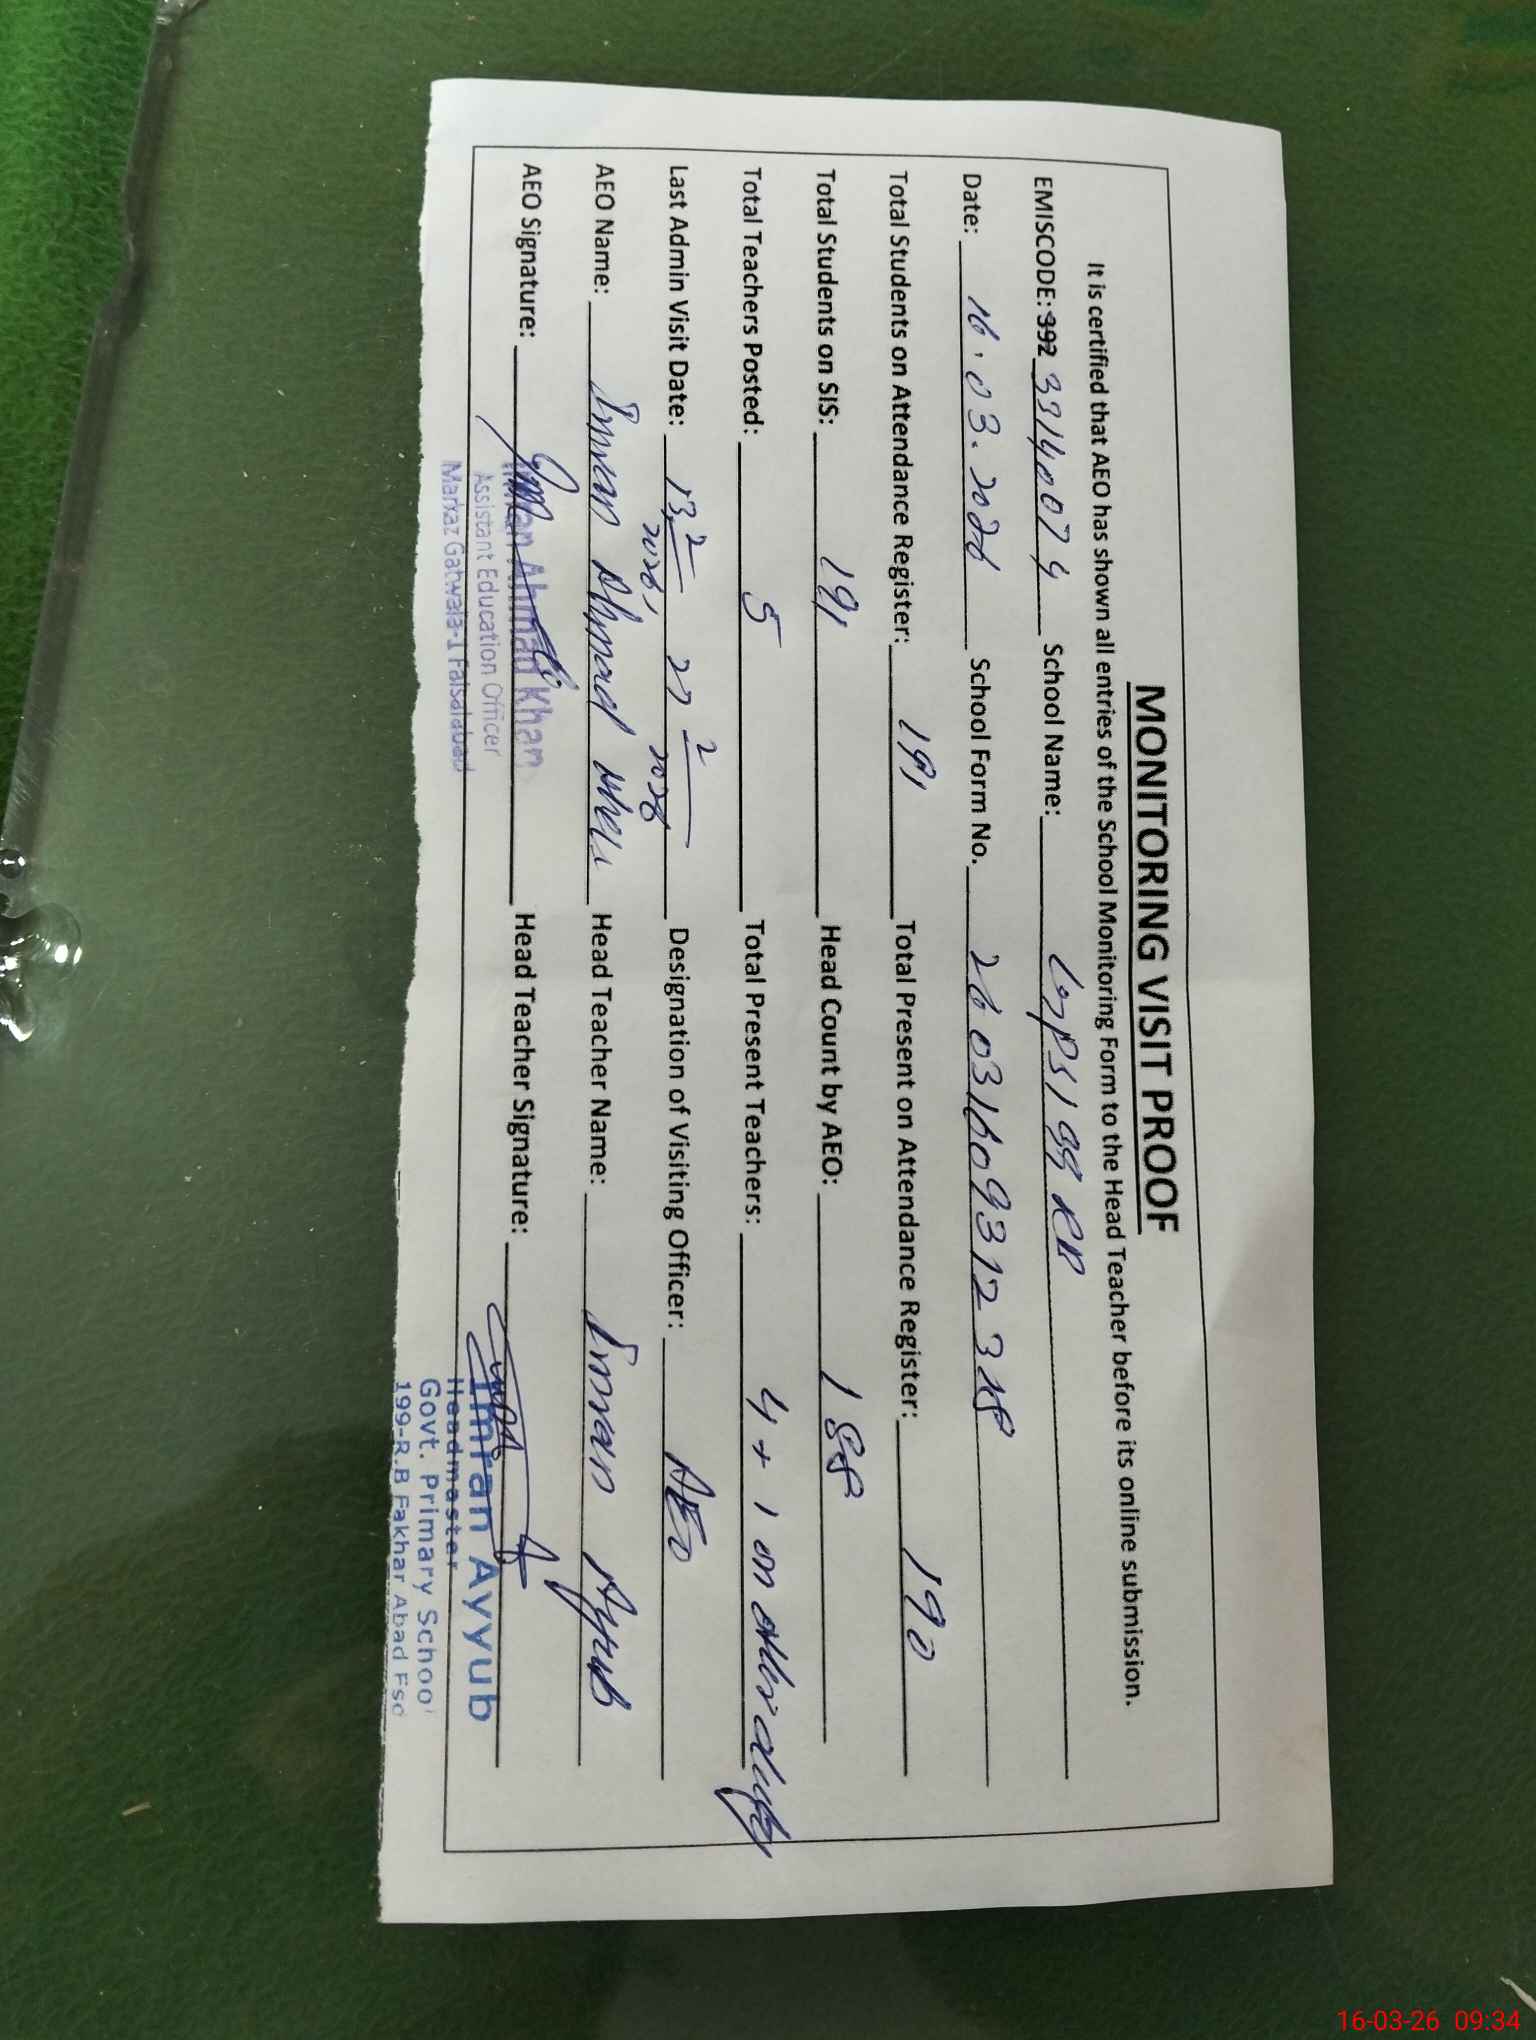 MONITORING VISIT PROOF
It is certified that AEO has shown all entries of the School Monitoring Form to the Head Teacher before its online submission.
EMISCODE: 392 3314007 4 School Name: GPS 199 RB
Date: 16.03.2026 School Form No. 26 0316093 12 3
Total Students on Attendance Register: 191 Total Present on Attendance Register: 190
Total Students on SIS: 191 Head Count by AEO: 188
Total Teachers Posted: 5 Total Present Teachers: 4 + 1 on other duty
Last Admin Visit Date: 13 2 2026, 27 2 2026 Designation of Visiting Officer: AEO
AEO Name: Imran Ahmad Khan Head Teacher Name: Imran Ayub
AEO Signature: Head Teacher Signature:
Imran Ahmad Khan
Assistant Education Officer
Markaz Gatwala-1 Faisalabad
Imran Ayyub
Headmaster
Govt. Primary School
199-R.B Fakhar Abad Fsd
16-03-26 09:34